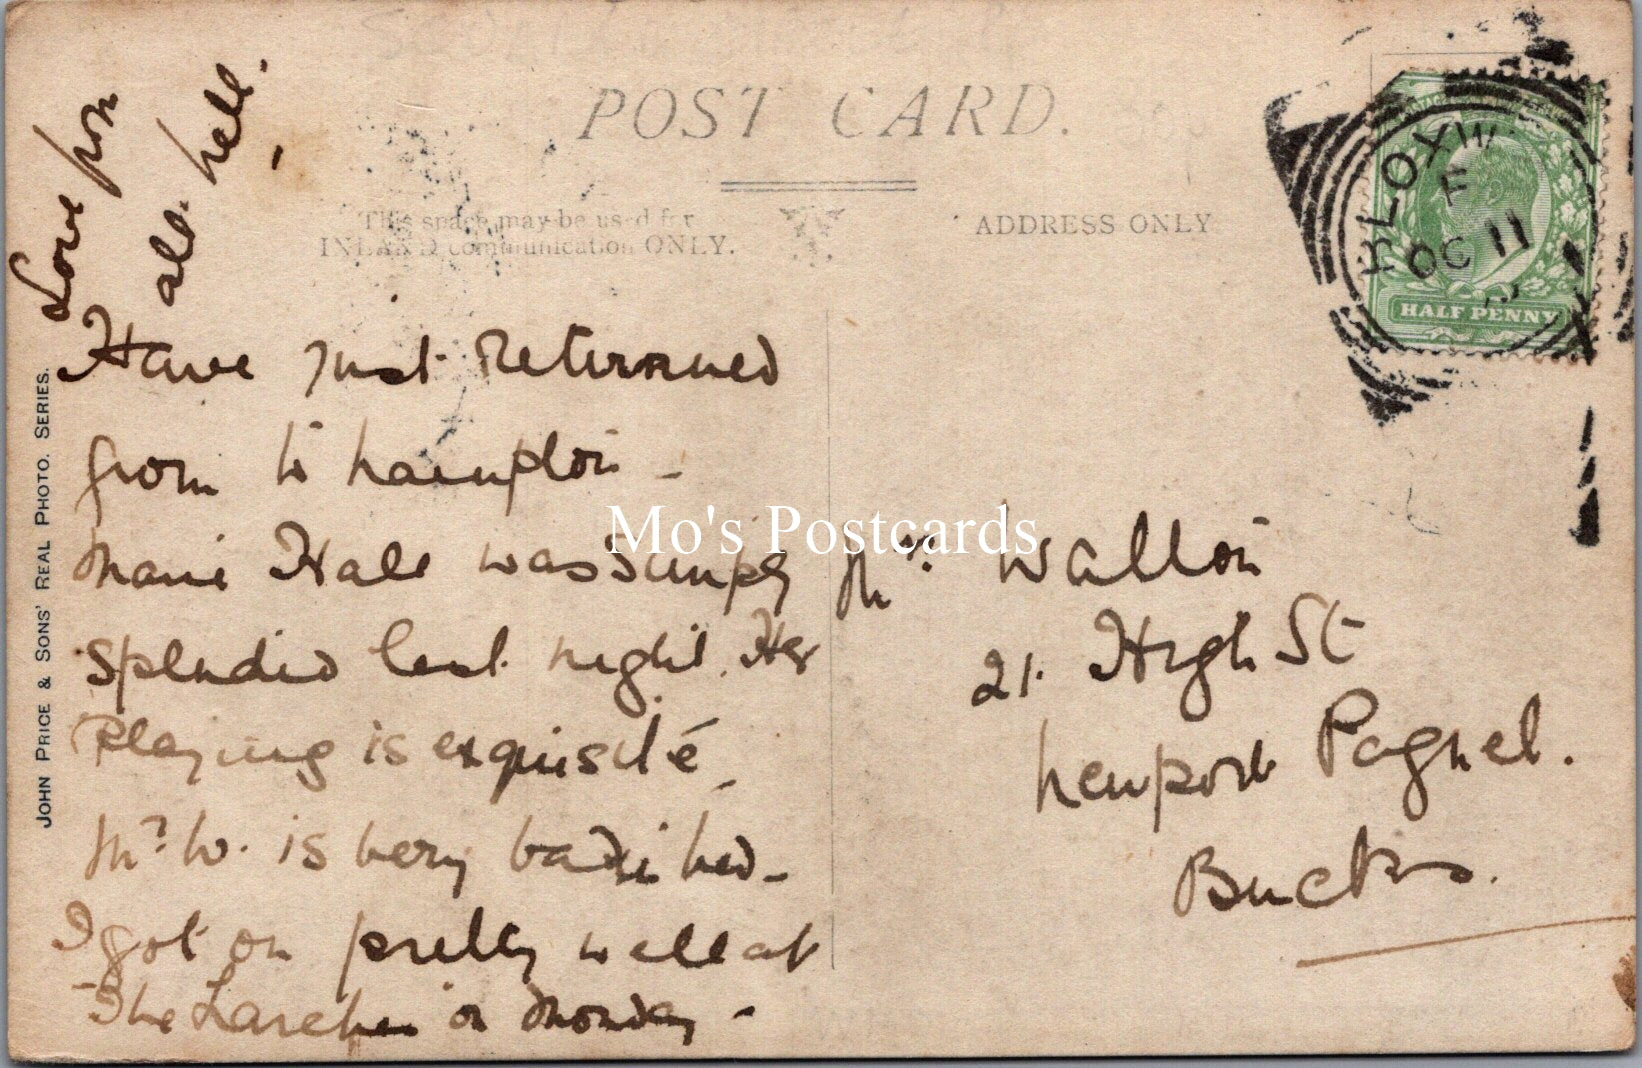 POST CARD.
This space may be used for
INLAND communication ONLY.
ADDRESS ONLY
BLOXW
OC 11
HALF PENNY
JOHN PRICE & SONS' REAL PHOTO. SERIES.
Love from
all. Nell.
Have just returned
from W'hampton -
Marie Hall was simply
splendid last night. Her
Playing is exquisite
Mr W. is very bad in bed -
I got on pretty well at
The Larches on Monday -
Mrs Walton
21. High St
Newport Pagnel.
Bucks.
Mo's Postcards